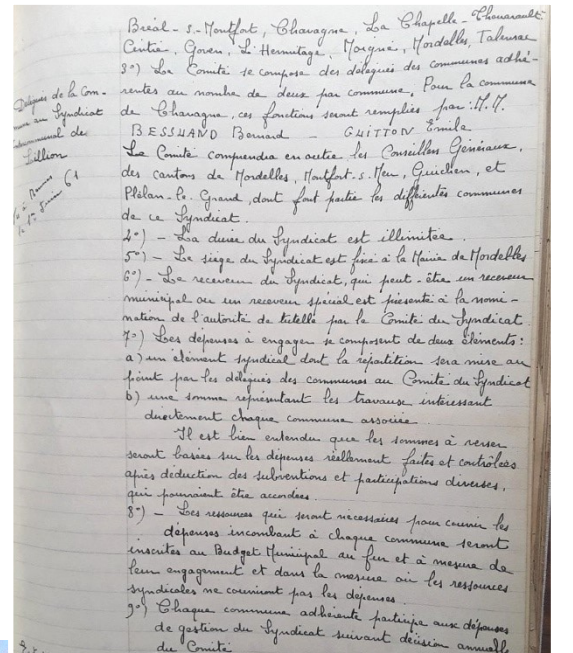 Bréal-s-Montfort, Chavagne, La Chapelle-Thouarault
Cintré, Goven, L'Hermitage, Moigné, Mordelles, Talensac
3°) Le Comité se compose des délégués des communes adhé-
rentes au nombre de deux par commune. Pour la commune
de Chavagne, ces fonctions seront remplies par : M.M.
BESSUAND Bernard - GUITTON Emile
Le Comité comprendra en outre les Conseillers Généraux,
des cantons de Mordelles, Montfort-s-Meu, Guichen, et
Plélan-le-Grand, dont font partie les différentes communes
de ce Syndicat.
4°) - La durée du Syndicat est illimitée.
5°) - Le siège du Syndicat est fixé à la Mairie de Mordelles
6°) - Le receveur du Syndicat, qui peut-être un receveur
municipal ou un receveur spécial est présenté à la nomi-
nation de l'autorité de tutelle par le Comité du Syndicat.
7°) Les dépenses à engager se composent de deux éléments :
a) un élément syndical dont la répartition sera mise au
point par les délégués des communes au Comité du Syndicat
b) une somme représentant les travaux intéressant
directement chaque commune associée.
Il est bien entendu que les sommes à verser
seront basées sur les dépenses réellement faites et contrôlées
après déduction des subventions et participations diverses,
qui pourraient être accordées.
8°) - Les ressources qui seront nécessaires pour couvrir les
dépenses incombant à chaque commune seront
inscrites au Budget Municipal au fur et à mesure de
leur engagement et dans la mesure où les ressources
syndicales ne couvriront pas les dépenses.
9°) Chaque commune adhérente participe aux dépenses
de gestion du Syndicat suivant décision annuelle
du Comité
Délégués de la Com-
au Syndicat
de
Lillion
à Rennes
Juin 61